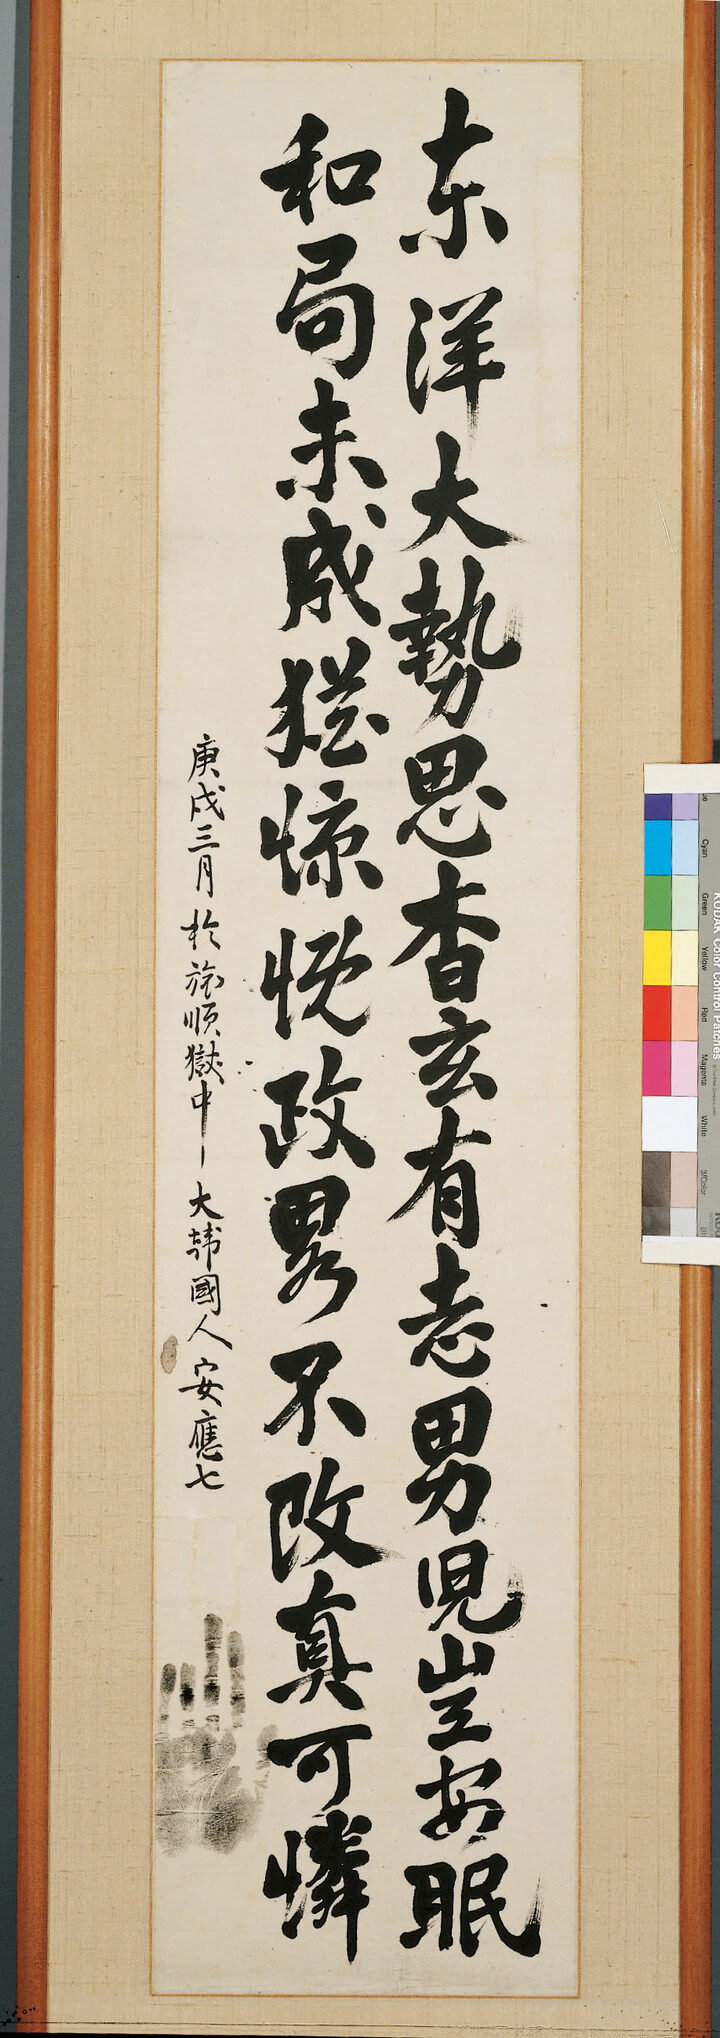 東洋大勢思杳玄有志男児豈安眠
和局未成猶慷慨政畧不改真可憐
庚戌三月 於旅順獄中 大韓國人 安應七
KODAK Color Control Patches
Cyan
Green
Yellow
Red
Magenta
White
3/Color